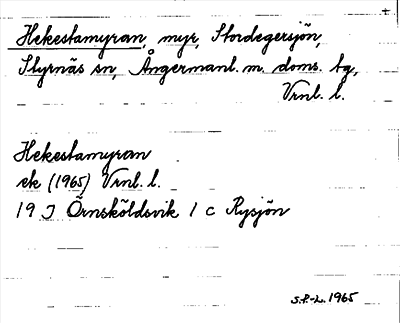 Hekestamyran, myr, Stordegersjön,
Styrnäs sn, Ångermanl. m. doms. tg,
Vrnl. l.
Hekestamyran
ek (1965) Vrnl. l.
19 J Örnsköldsvik 1 c Rysjön
S.P.-L. 1965